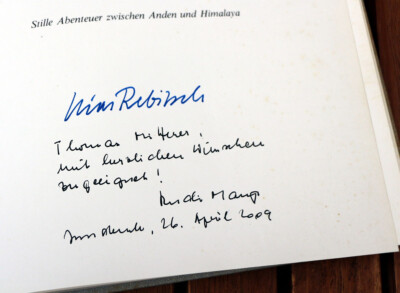 Stille Abenteuer zwischen Anden und Himalaya
Rebitsch
Thomas Mitterer,
mit herzlichen Wünschen
zugeeignet!
Innsbruck, 26. April 2009